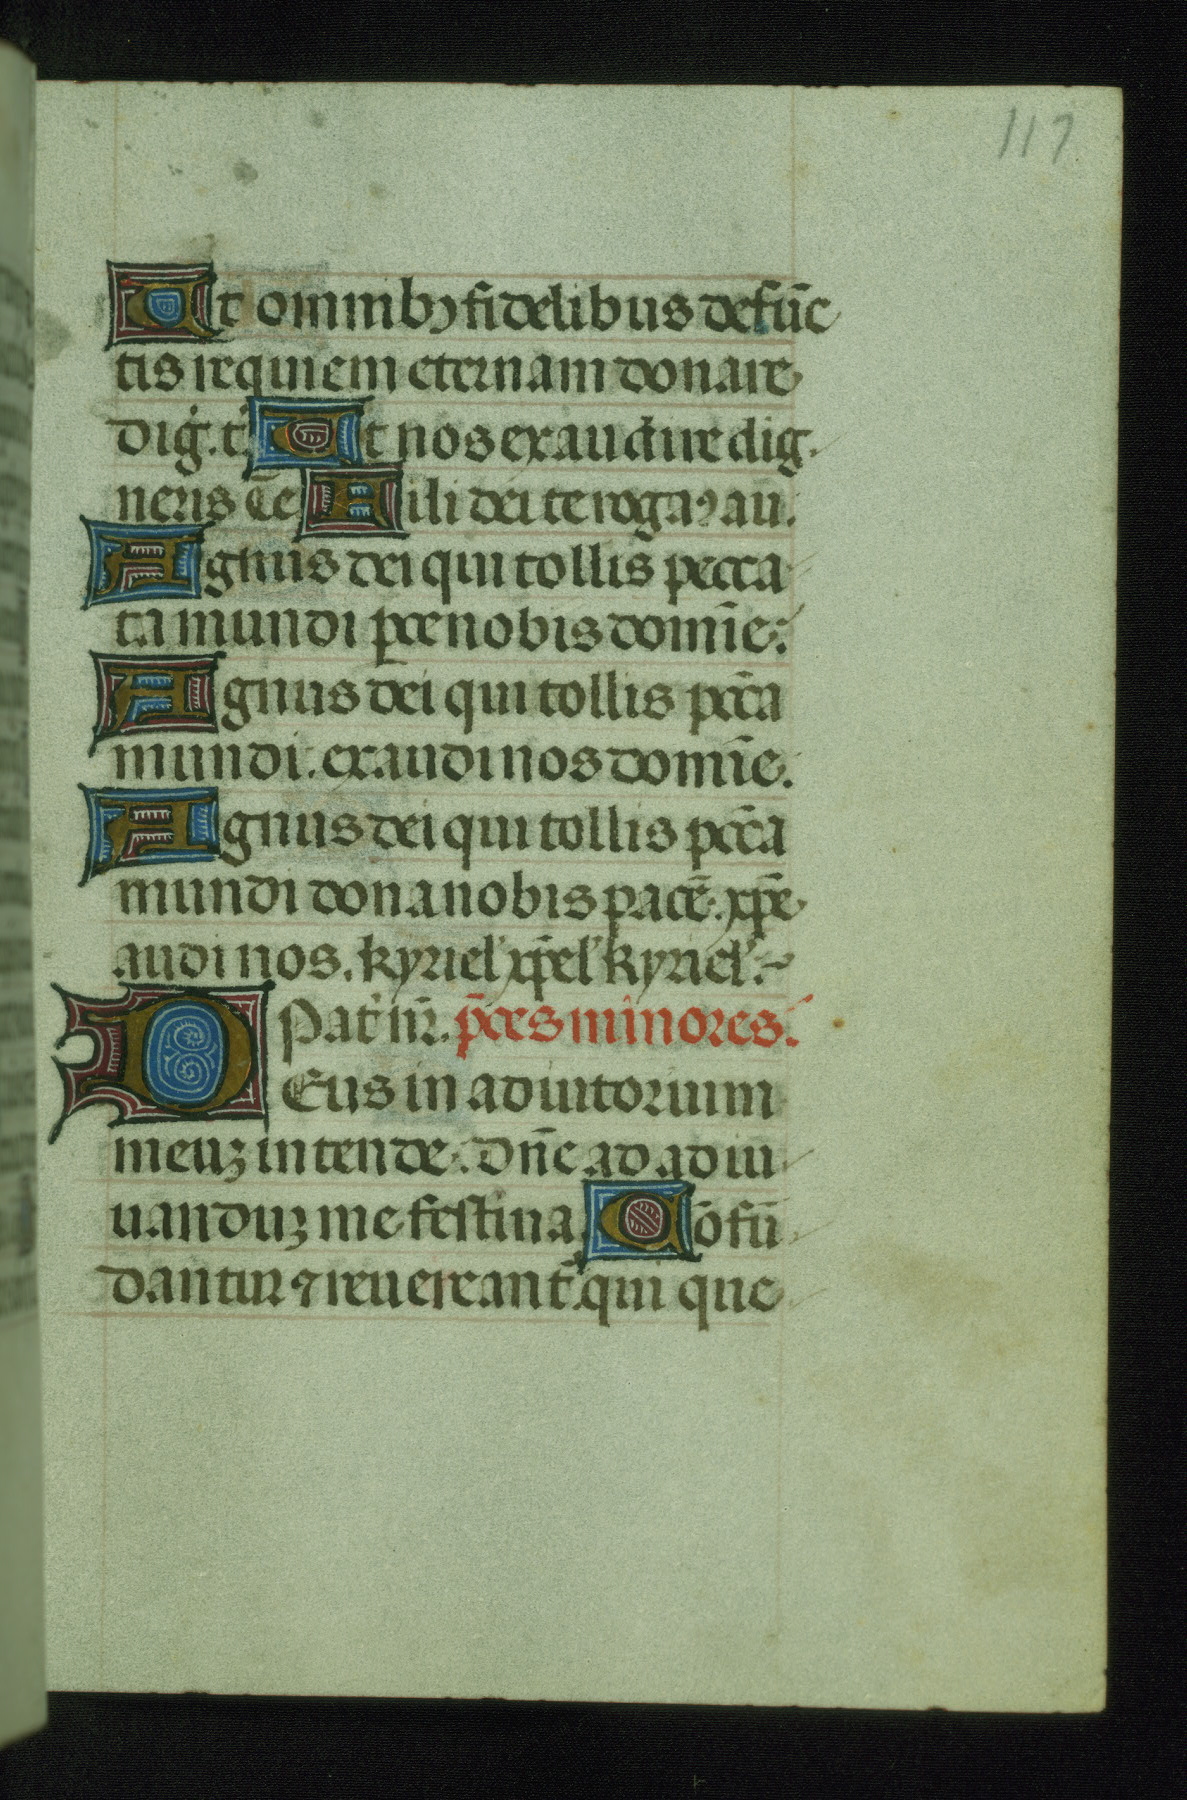 117
Ut omnibꝰ fidelibus defūc
tis requiem eternam donare
dig̾. t̾. Ut nos exaudire dig
neris te Fili dei te rogaꝰ au.
Agnus dei qui tollis pecca
ta mundi parce nobis domīe:
Agnus dei qui tollis pcc̄a
mundi. exaudi nos domīe.
Agnus dei qui tollis pcc̄a
mundi dona nobis pacē. xp̄e
audi nos. kyriel' xp̄el' kyriel'.
Pat̾ nr̄. p̄ces minores.
DEus in adiutorium
meuꝫ intende. Dn̄e ad adiu
uanduꝫ me festina Cōfū
dantur ⁊ reuereant̄. qui que